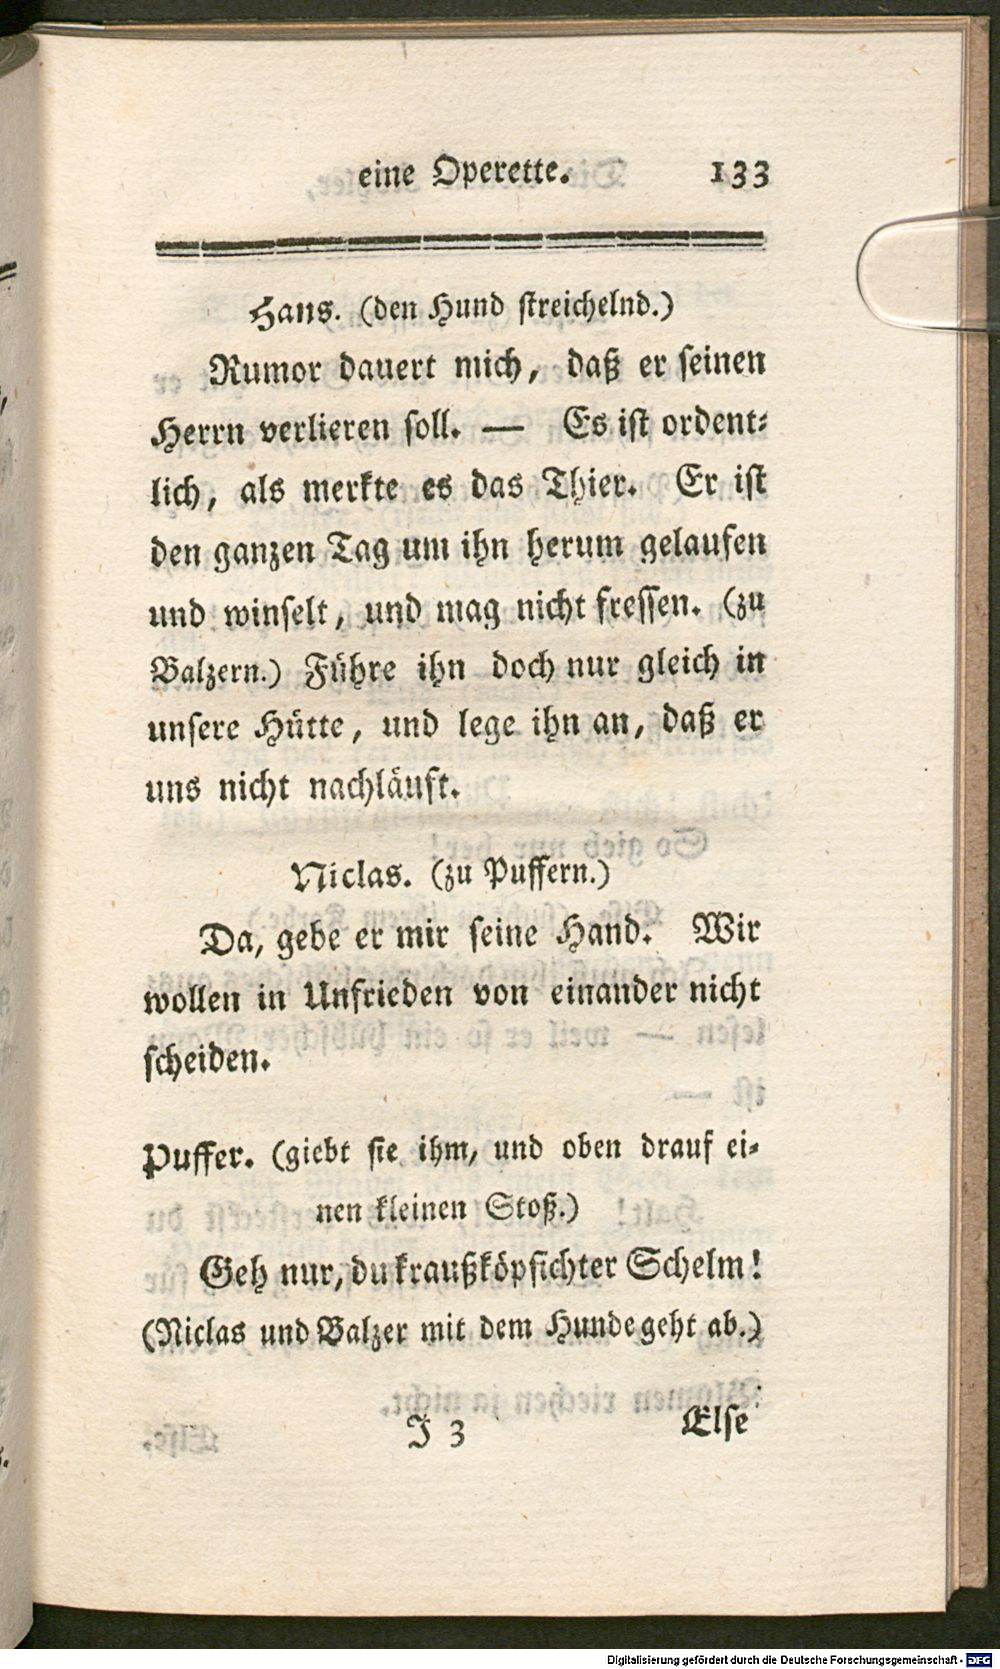 eine Operette. 133
Hans. (den Hund streichelnd.)
Rumor dauert mich, daß er seinen
Herrn verlieren soll. — Es ist ordent-
lich, als merkte es das Thier. Er ist
den ganzen Tag um ihn herum gelaufen
und winselt, und mag nicht fressen. (zu
Balzern.) Führe ihn doch nur gleich in
unsere Hütte, und lege ihn an, daß er
uns nicht nachläuft.
Niclas. (zu Puffern.)
Da, gebe er mir seine Hand. Wir
wollen in Unfrieden von einander nicht
scheiden.
Puffer. (giebt sie ihm, und oben drauf ei-
nen kleinen Stoß.)
Geh nur, du kraußköpfichter Schelm!
(Niclas und Balzer mit dem Hunde geht ab.)
J 3 Else
Digitalisierung gefördert durch die Deutsche Forschungsgemeinschaft - DFG